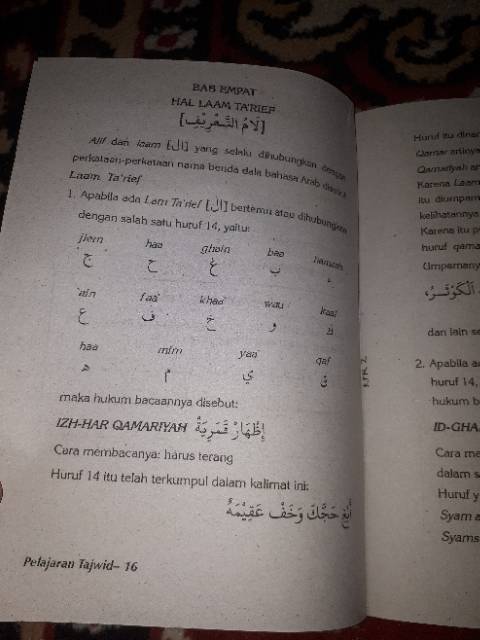 BAB EMPAT
HAL LAAM TA'RIEF
[لَامُ التَّعْرِيْفِ]
Alif dan laam [ال] yang selalu dihubungkan dengan
perkataan-perkataan nama benda dala bahasa Arab
Laam Ta'rief
1. Apabila ada Lam Ta'rief [ال] bertemu atau dihubungkan
dengan salah satu huruf 14, yaitu:
jiem haa ghain baa hamzah
ج ح غ ب ء
'ain faa' khaa' wau kaaf
ع ف خ و ك
haa mim yaa qaf
ه م ي ق
maka hukum bacaannya disebut:
IZH-HAR QAMARIYAH إِظْهَارْ قَمَرِيَةْ
Cara membacanya: harus terang
Huruf 14 itu telah terkumpul dalam kalimat ini:
أَبْغِ حَجَّكَ وَخَفْ عَقِيْمَهُ
Pelajaran Tajwid– 16
Huruf itu
Qamar artinya
Qamariyah
Karena Laam
itu diumpam
kelihatannya
Karena itu
huruf qama
(Umpamany
الْكَوْثَرَ،
dan lain se
2. Apabila a
huruf 14,
hukum b
ID-GHA
Cara me
dalam s
Huruf y
Syam a
Syams